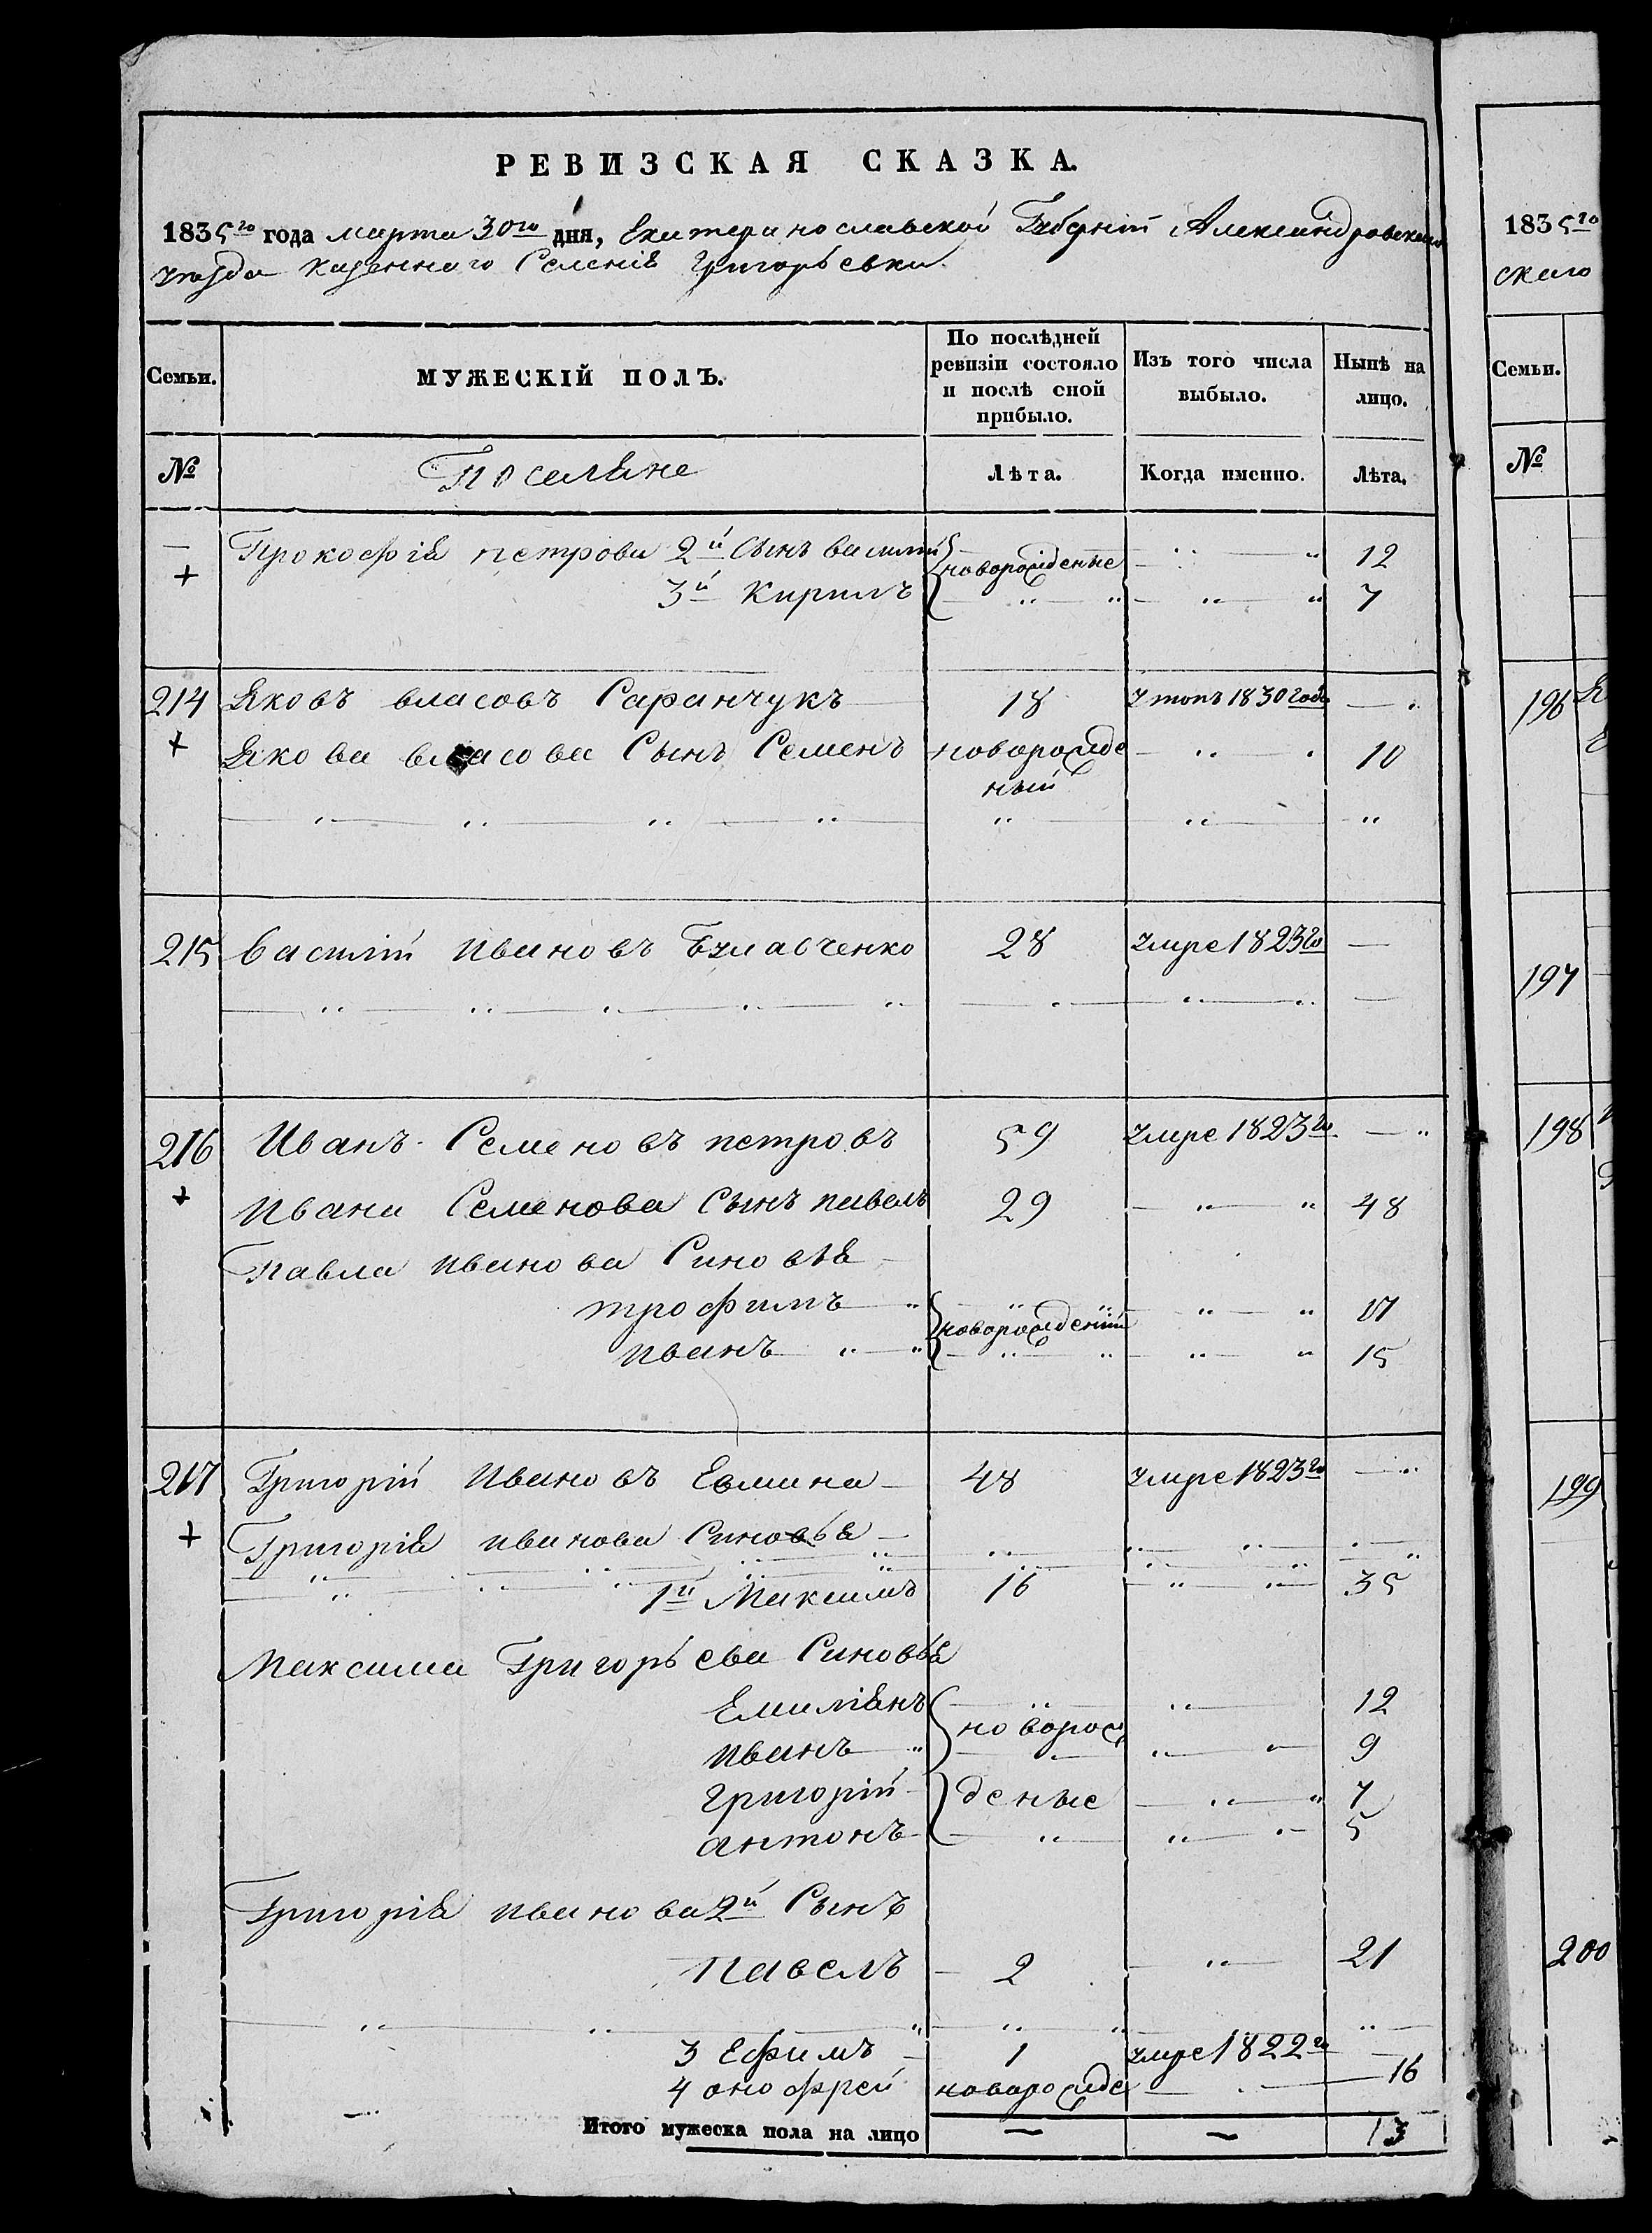 РЕВИЗСКАЯ СКАЗКА.
1835го года марта 30го дня, Екатеринославской Губернiи Александровского
уезда казенного Селенiя Григорьевки.
Семьи. МУЖЕСКIЙ ПОЛЪ. По послѣдней ревизiи состояло и послѣ оной прибыло. Изъ того числа выбыло. Нынѣ на лицо.
№ Поселяне Лѣта. Когда именно. Лѣта.
Прокофiя петрова 2й Сынъ василий новорожденые 12
+ 3й Кирилъ 7
214 Яковъ власовъ Саранчукъ 18 утопъ 1830 года
+ Якова власова Сынъ Семенъ новорожденый 10
215 василiй ивановъ 28 умре 1823го
216 Иванъ Семеновъ петровъ 59 умре 1823го
+ ивана Семенова Сынъ павелъ 29 48
Павла иванова Синовья
трофимъ новорожденiи 17
иванъ 15
217 Григорiй ивановъ 48 умре 1823го
+ Григорiя иванова Синовья
1й Максимъ 16 35
Максима Григорьева Синовья
Емилiянъ новорож 12
иванъ 9
григорiй деные 7
антонъ 5
Григорiя иванова 2й Сынъ
павелъ 2 21
3 Ефимъ 1 умре 1822го
4 онофрей новорожде 16
Итого мужеска пола на лицо 13
1835го
ского
Семьи.
№
196
197
198
199
200